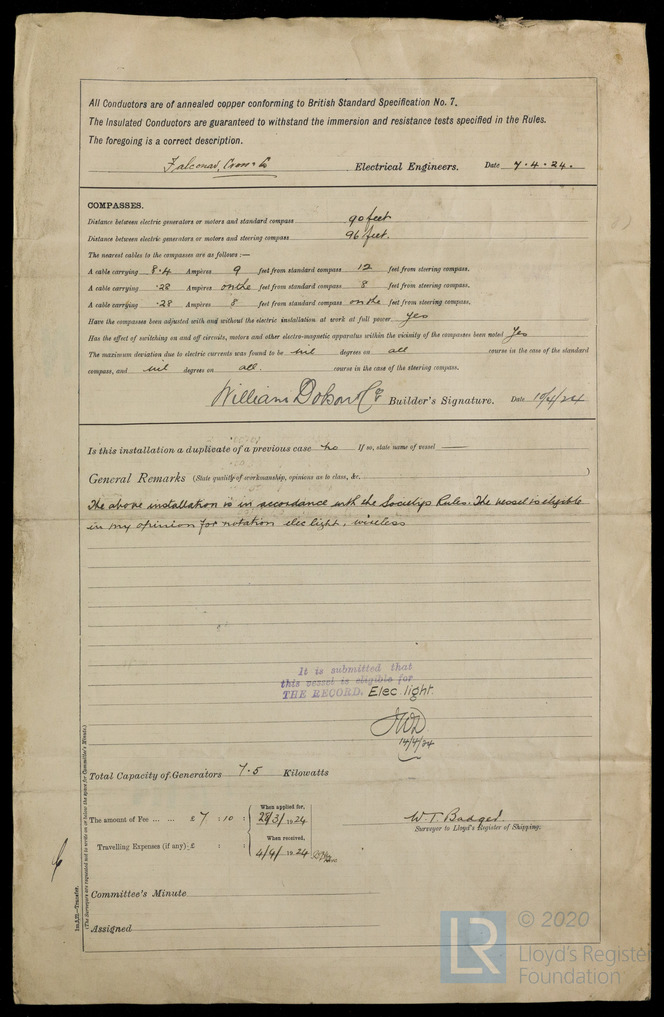 All Conductors are of annealed copper conforming to British Standard Specification No. 7.
The Insulated Conductors are guaranteed to withstand the immersion and resistance tests specified in the Rules.
The foregoing is a correct description.
Falconar, Cross & Co Electrical Engineers. Date 7.4.24.
COMPASSES.
Distance between electric generators or motors and standard compass 90 feet
Distance between electric generators or motors and steering compass 96 feet.
The nearest cables to the compasses are as follows :—
A cable carrying 8.4 Ampères 9 feet from standard compass 12 feet from steering compass.
A cable carrying .28 Ampères on the feet from standard compass 8 feet from steering compass.
A cable carrying .28 Ampères 8 feet from standard compass on the feet from steering compass.
Have the compasses been adjusted with and without the electric installation at work at full power yes
Has the effect of switching on and off circuits, motors and other electro-magnetic apparatus within the vicinity of the compasses been noted yes
The maximum deviation due to electric currents was found to be nil degrees on all course in the case of the standard
compass, and nil degrees on all. course in the case of the steering compass.
William Dobson & Co Builder's Signature. Date 10/4/24
Is this installation a duplicate of a previous case no If so, state name of vessel —
General Remarks (State quality of workmanship, opinions as to class, &c. )
The above installation is in accordance with the Society's Rules. The vessel is eligible
in my opinion for notation elec light, wireless
It is submitted that
this vessel is eligible for
THE RECORD. Elec. light.
JWD
14/4/24
Total Capacity of Generators 7.5 Kilowatts
The amount of Fee ... ... £ 7 : 10 :
When applied for,
28/3/1924
When received,
4/4/1924
Travelling Expenses (if any) £ : :
W. T. Badger
Surveyor to Lloyd's Register of Shipping.
Committee's Minute
Assigned
(The Surveyors are requested not to write on or below the space for Committee's Minute.)
© 2020
LR
Lloyd's Register
Foundation